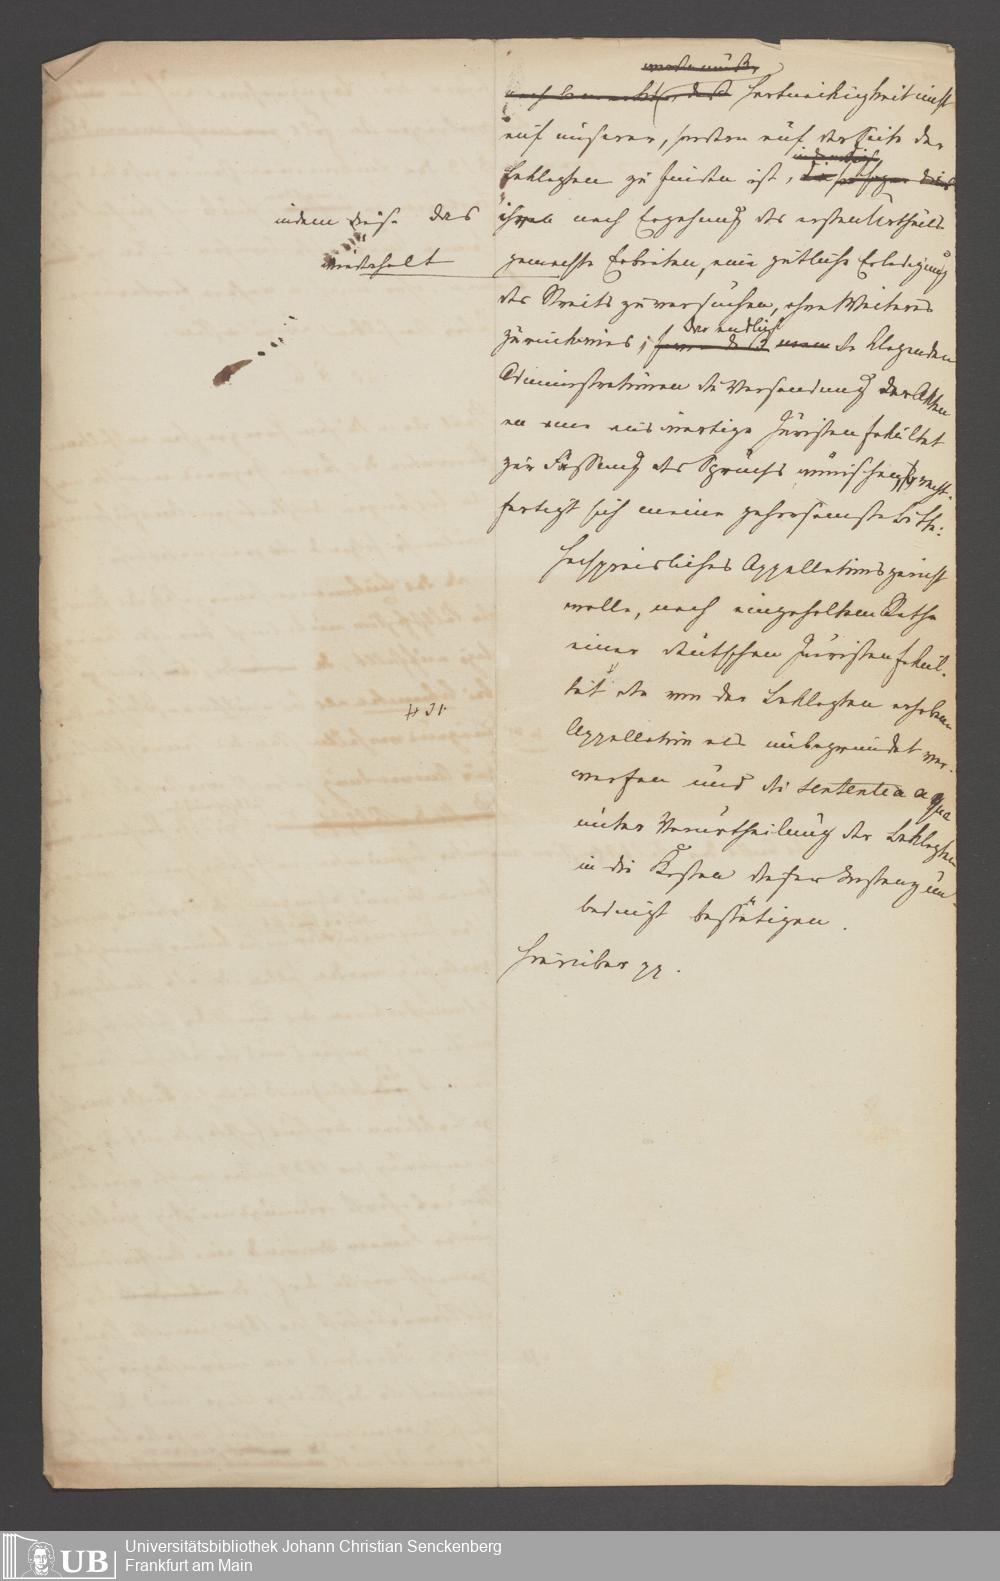 Hartnäckigkeit nicht
auf unserer, sondern auf der Seite der
Beklagten zu finden ist,
indem diese das
wiederholt
ihnen nach Ergehung des ersten Urtheils
gemachte Erbieten, eine gütliche Erledigung
des Streits zu versuchen, ohne Weiteres
zurückwies;
der endlich
die klagenden
Administratoren die Versendung der Akten
an eine auswärtige Juristenfakultät
zur Fassung des Spruchs wünschen, recht-
fertigt sich meine gehorsamste Bitte:
Hochpreisliches Appellationsgericht
wolle, nach eingeholtem Rathe
einer deutschen Juristenfakul-
tät die von der Beklagten erhobene
Appellation als unbegründet ver-
werfen und die sententia a qua
unter Verurtheilung der Beklagten
in die Kosten dieser Instanz un-
bedingt bestätigen.
Hierüber pp.
UB
Universitätsbibliothek Johann Christian Senckenberg
Frankfurt am Main